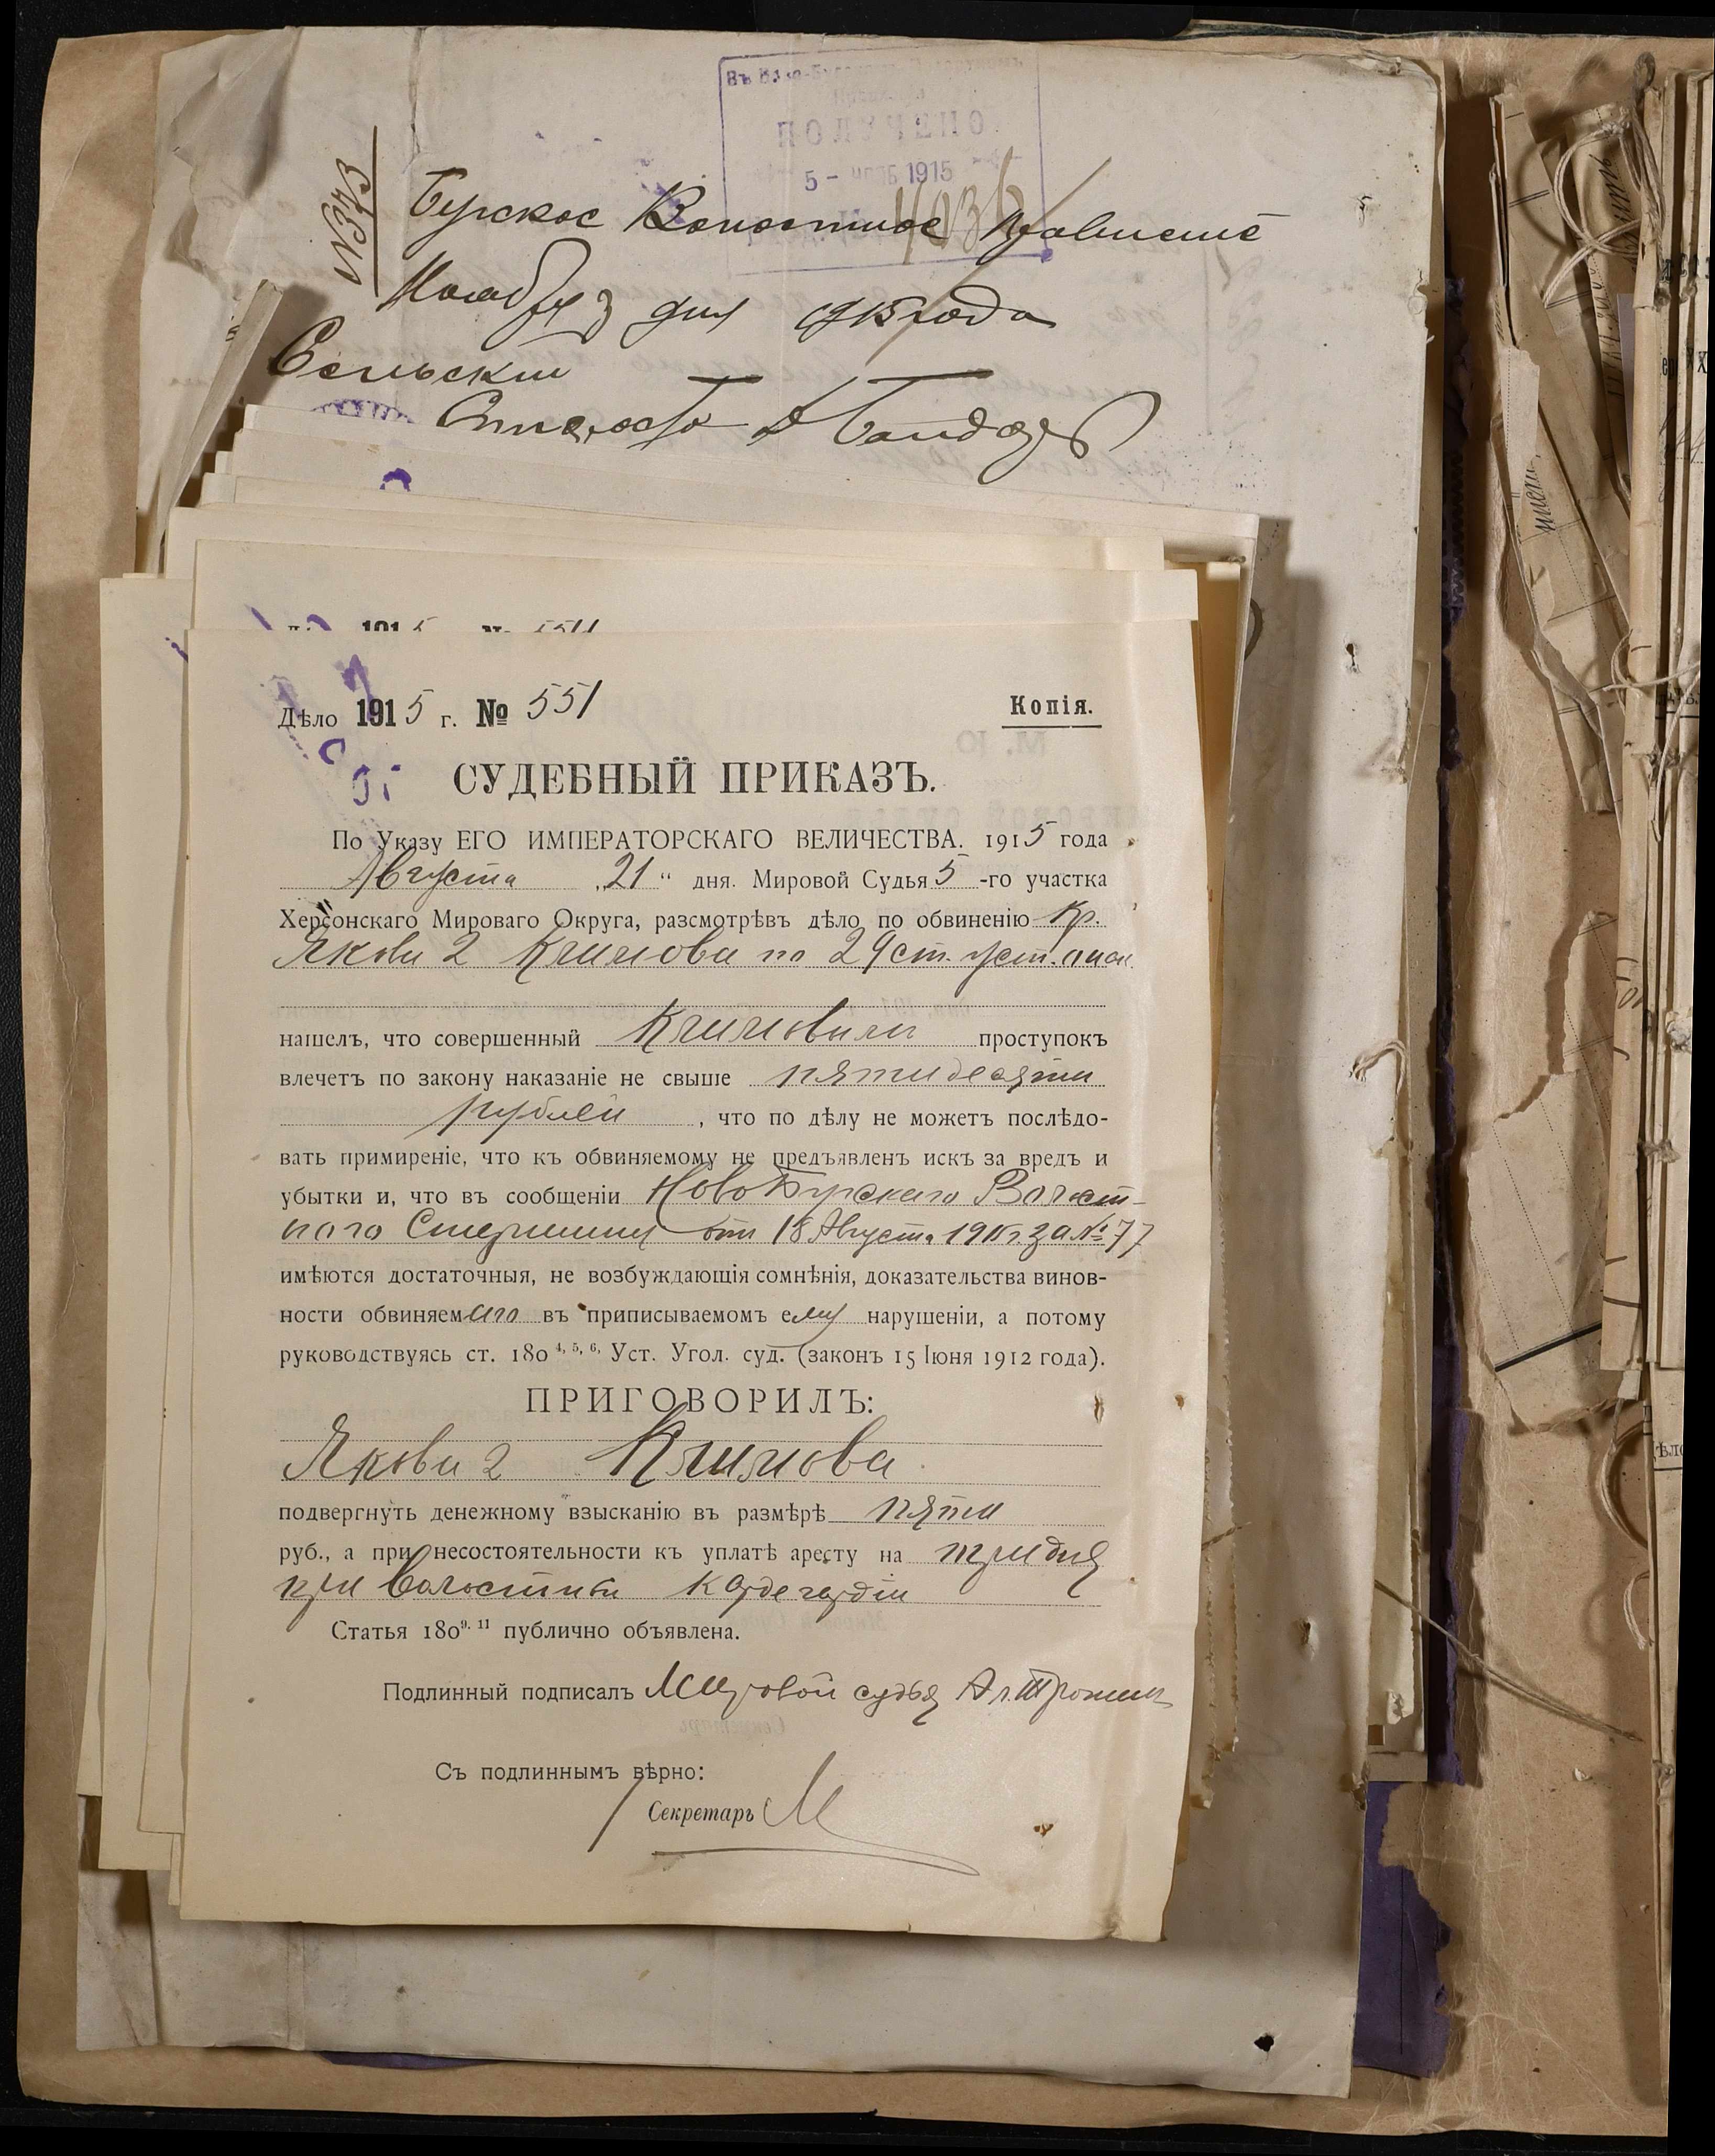 ПОЛУЧЕНО
5 - 1915
№373
Бугское Волостное Правление
Ноября 3 дня 1915 года
Сельский
Староста
Дѣло 1915 г. № 551
Копія.
СУДЕБНЫЙ ПРИКАЗЪ.
По Указу ЕГО ИМПЕРАТОРСКАГО ВЕЛИЧЕСТВА. 1915 года
Августа „21“ дня. Мировой Судья 5-го участка
Херсонскаго Мироваго Округа, разсмотрѣвъ дѣло по обвиненію кр.
Якова 2 Климова по 29 ст. уст. о нак.
нашелъ, что совершенный Климовымъ проступокъ
влечетъ по закону наказаніе не свыше пятидесяти
рублей, что по дѣлу не можетъ послѣдо-
вать примиреніе, что къ обвиняемому не предъявленъ искъ за вредъ и
убытки и, что въ сообщеніи Ново Бугскаго Волост-
ного Старшины отъ 18 Августа 1915 г. за № 77
имѣются достаточныя, не возбуждающія сомнѣнія, доказательства винов-
ности обвиняемаго въ приписываемомъ ему нарушеніи, а потому
руководствуясь ст. 180 4, 5, 6, Уст. Угол. суд. (законъ 15 Іюня 1912 года).
ПРИГОВОРИЛЪ:
Якова 2 Климова
подвергнуть денежному взысканію въ размѣрѣ пяти
руб., а при несостоятельности къ уплатѣ аресту на три дня
при Волостной кордегардіи
Статья 180 9. 11 публично объявлена.
Подлинный подписалъ Мировой судья Ал.
Съ подлиннымъ вѣрно:
Секретарь